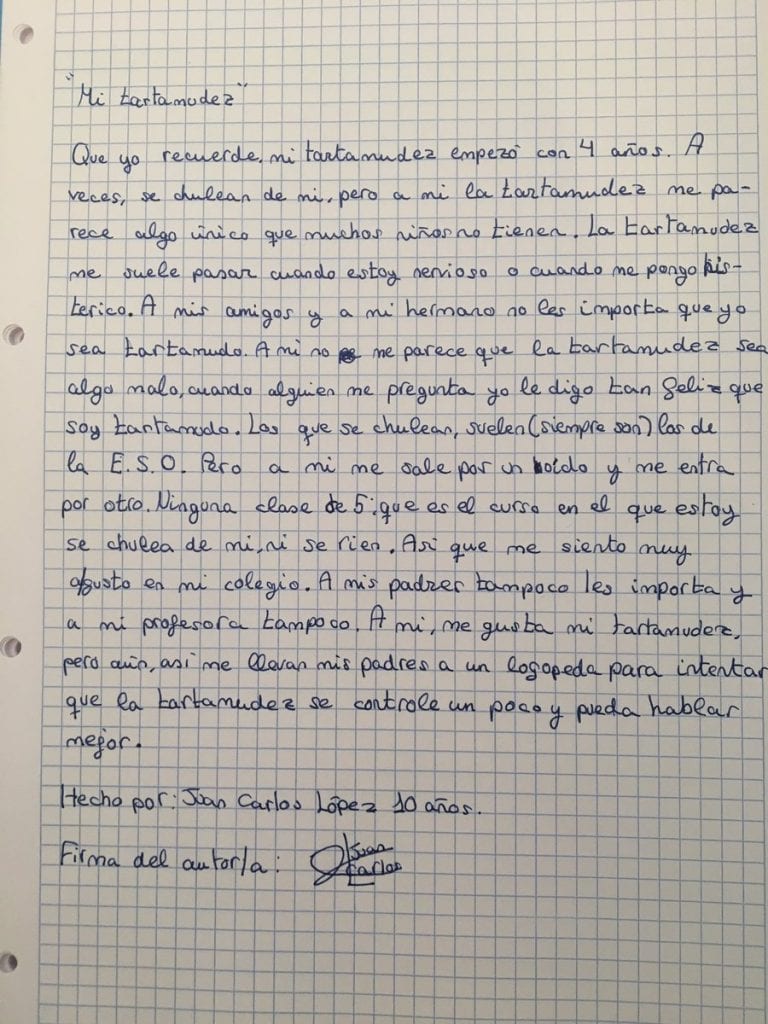 "Mi tartamudez"
Que yo recuerde, mi tartamudez empezó con 4 años. A
veces, se chulean de mi, pero a mi la tartamudez me pa-
rece algo único que muchos niños no tienen. La tartamudez
me suele pasar cuando estoy nervioso o cuando me pongo his-
terico. A mis amigos y a mi hermano no les importa que yo
sea tartamudo. A mi no me parece que la tartamudez sea
algo malo, cuando alguien me pregunta yo le digo tan feliz que
soy tartamudo. Los que se chulean, suelen (siempre son) los de
la E.S.O. Pero a mi me sale por un oido y me entra
por otro. Ninguna clase de 5º, que es el curso en el que estoy
se chulea de mi, ni se rien. Asi que me siento muy
agusto en mi colegio. A mis padres tampoco les importa y
a mi profesora tampoco. A mi, me gusta mi tartamudez,
pero aún, asi me llevan mis padres a un logopeda para intentar
que la tartamudez se controle un poco y pueda hablar
mejor.
Hecho por: Juan Carlos López 10 años.
Firma del autor/a: Juan
Carlos